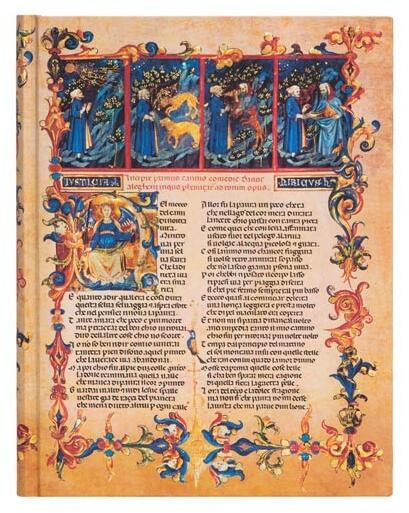 IUSTICIA
Incipit primus cantus comedie Dantis
alegherii in quo
ad totum opus.
El mezzo
del camin
di nostra
vita.
Mi ritro
vai per
una sel
va scura
Che la di
ritta via
era smar
rita
E quanto a dir qual era e cosa dura
questa selva selvaggia e aspra e forte
che nel pensier rinova la paura
Tant e amara che poco e piu morte
ma per tractar del ben chio vi trovai
diro dellaltre cose chio vo scorte
I non so ben ridir comio ventrai
tantera pien di sonno a quel punto
che la verace via abandonai
Ma poi chio fui al pie dun colle giunto
la dove terminava quella valle
che mavea di paura il cor
Guardai in alto e vidi le sue spalle
vestite gia de raggi del pianeta
che mena dritto altrui per ogni calle
Allor fu la paura un poco cheta
che nel lago del cor mera durata
la nocte chio passai con tanta pieta
E come quei che con lena affannata
uscito fuor del pelago alla riva
si volge allacqua perigliosa e guata
Cosi lanimo mio chancor fuggiva
si volse retro a rimirar lo passo
che non lascio gia mai persona viva
Poi chebbi riposato il corpo lasso
ripresi via per la piaggia diserta
si chel pie fermo sempre era il piu basso
Et ecco quasi al cominciar dellerta
una lonça leggiera e presta molto
che di pel maculato era coperta
E non mi si partia dinanzi al volto
anzi impediva tanto il mio camino
chio fui per ritornar piu volte volto
Tempo era dal principio del mattino
el sol montava non con quelle stelle
cheran con lui quando lamor divino
Mosse da prima quelle cose belle
si cha bene sperar mera cagione
di quella fiera la gaetta pelle
Lora del tempo e la dolce stagione
ma non si che paura non mi desse
la vista che mapparve dun leone.